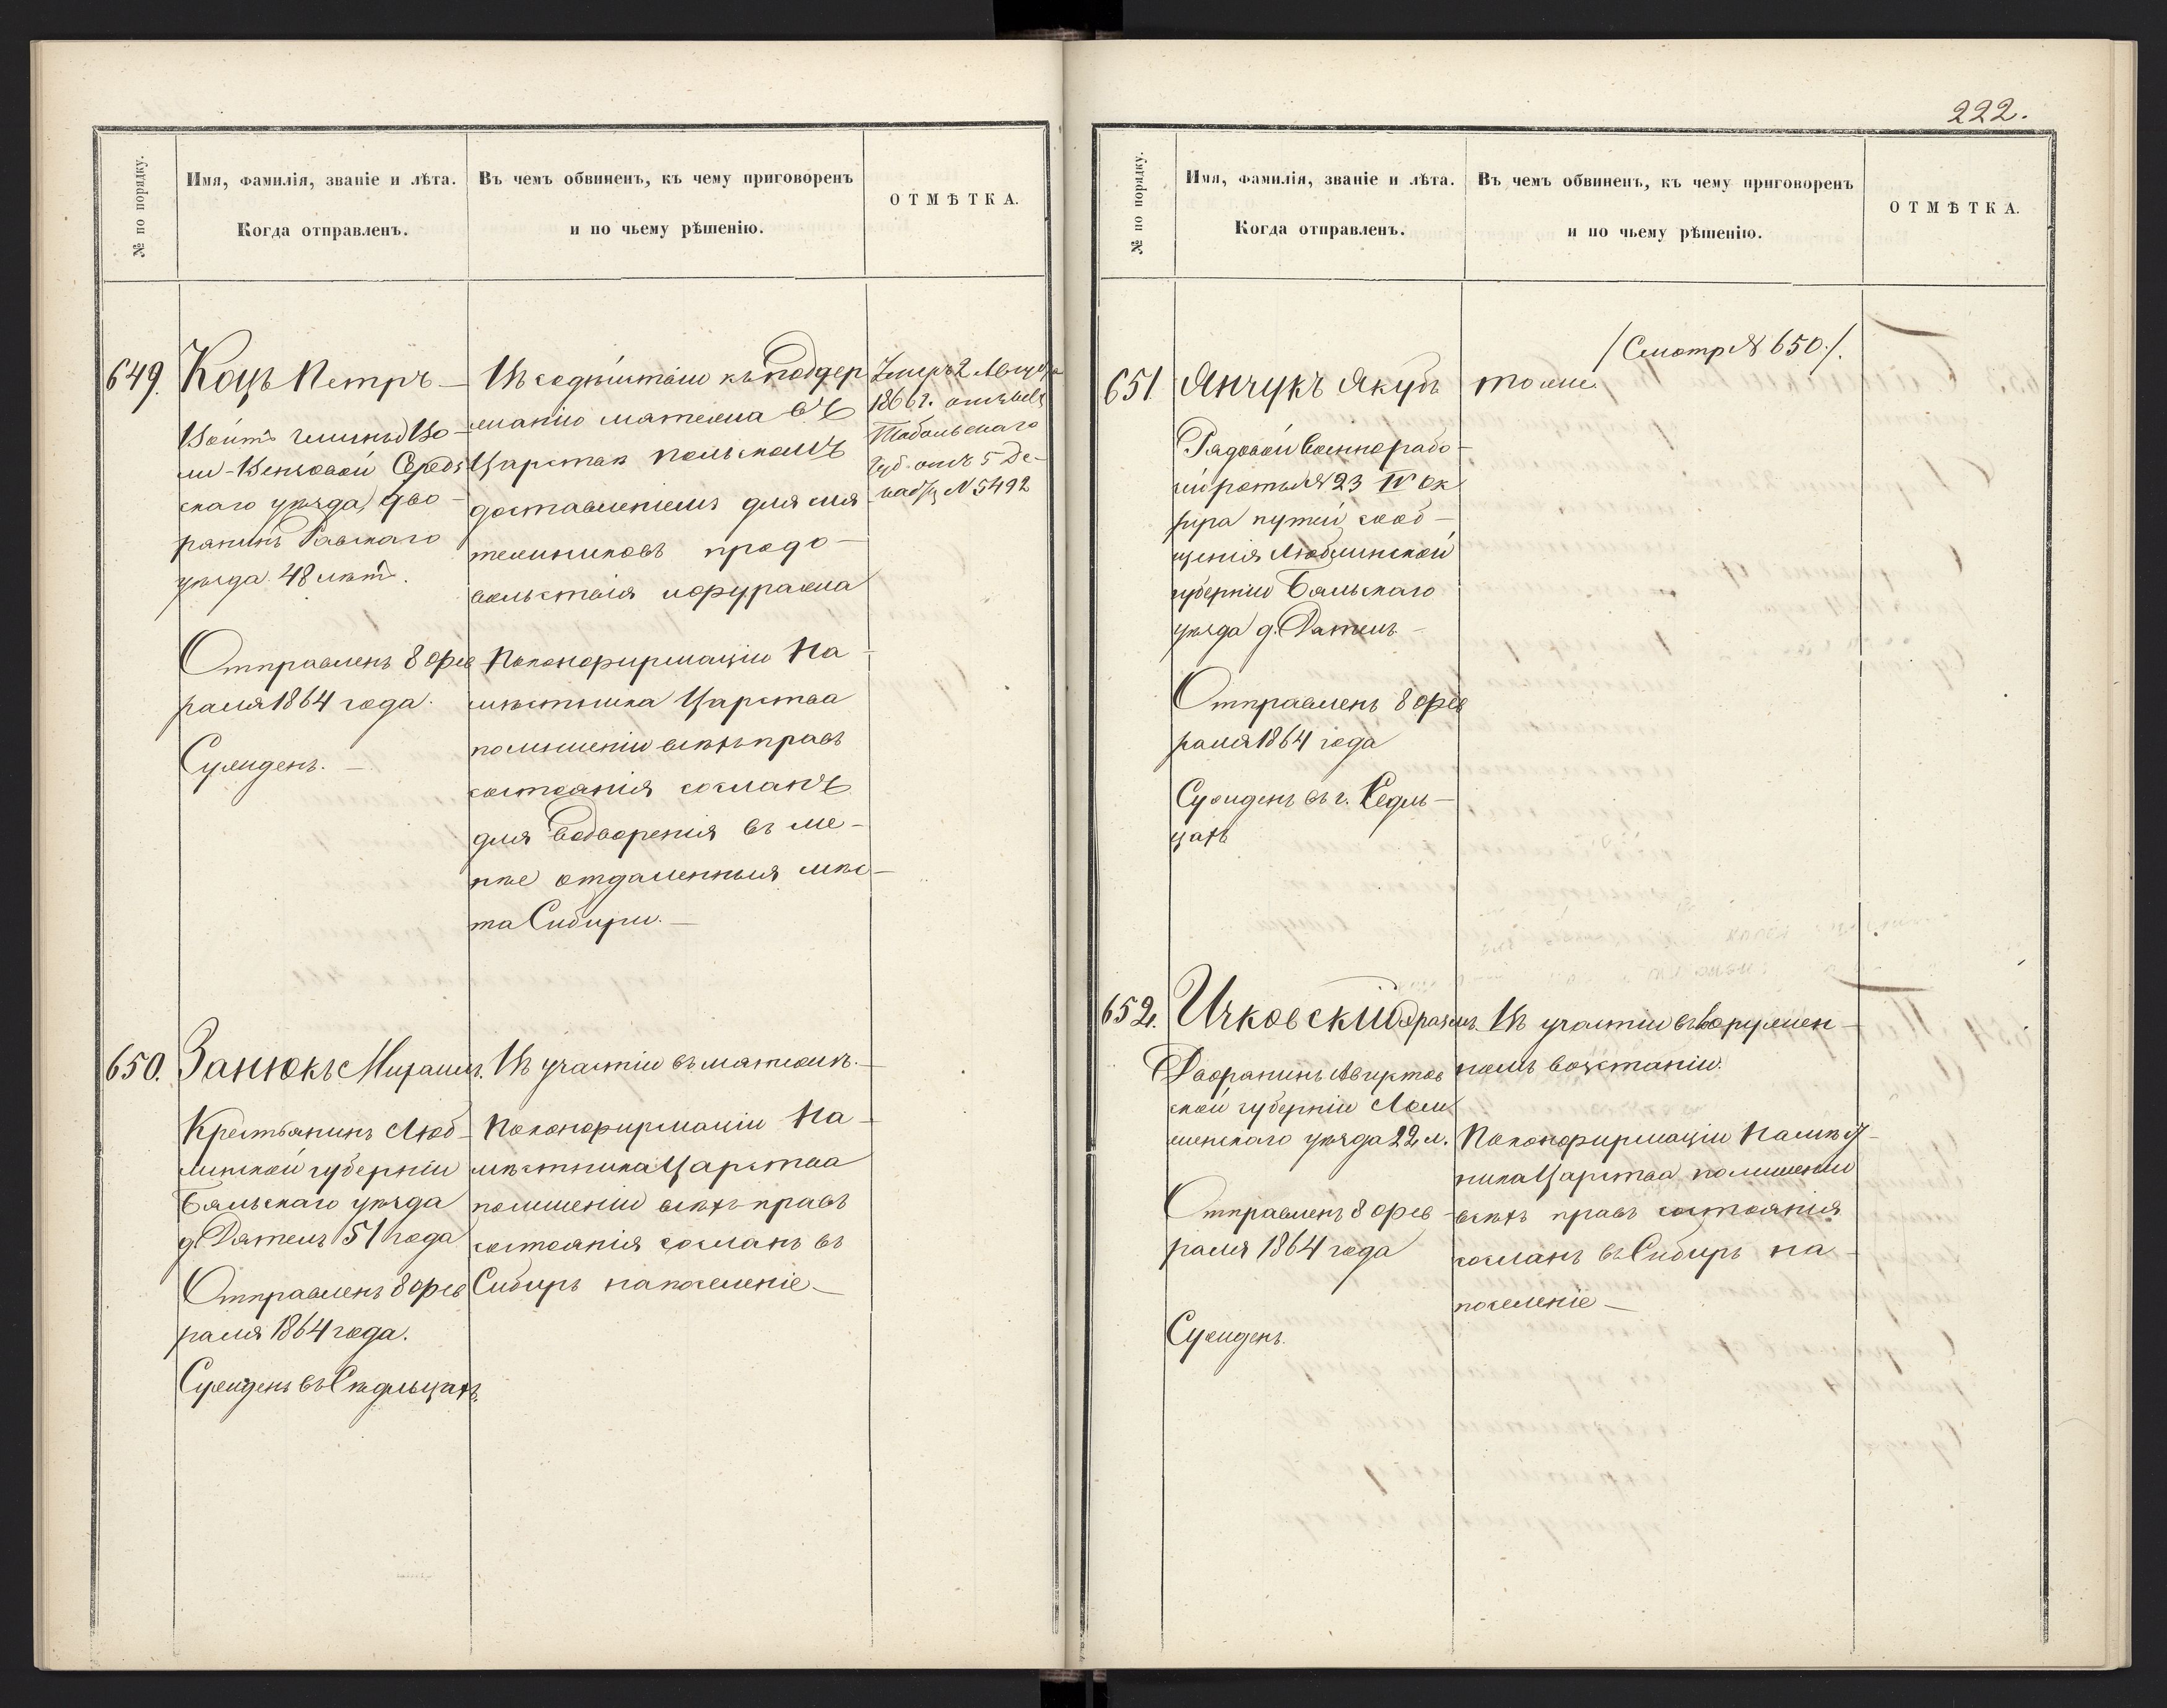 № по порядку.
Имя, фамилія, званіе и лѣта.
Когда отправленъ.
Въ чемъ обвиненъ, къ чему приговоренъ
и по чьему рѣшенію.
ОТМѢТКА.
649.
Коцъ Петръ —
Войтъ гмины Во-
ли-Венжовой
скаго уѣзда, дво-
рянинъ Равскаго
уѣзда 48 лѣтъ.
Отправленъ 8 фев
раля 1864 года.
Сужденъ. —
Въ содѣйствіи къ поддер
жанію мятежа въ
Царствѣ Польскомъ
доставленіемъ для мя
тежниковъ продо-
вольствія и фуража
По конфирмаціи На
мѣстника Царства
по лишеніи всѣхъ правъ
состоянія сосланъ
для водворенія въ ме-
нѣе отдаленныя мѣс-
та Сибири. —
Умеръ 2 Августа
1866 г.
Тобольскаго
Губ. отъ 5 Де-
кабря N 5492
650.
Занюкъ Михаилъ.
Крестьянинъ Люб-
линской губерніи
Бяльскаго уѣзда
д. Дятель 51 года
Отправленъ 8 фев
раля 1864 года.
Сужденъ въ Сѣдльцахъ
Въ участіи въ мятежѣ. —
По конфирмаціи На-
мѣстника Царства
по лишеніи всѣхъ правъ
состоянія сосланъ въ
Сибирь на поселеніе —
222.
№ по порядку.
Имя, фамилія, званіе и лѣта.
Когда отправленъ.
Въ чемъ обвиненъ, къ чему приговоренъ
и по чьему рѣшенію.
ОТМѢТКА.
651
Янчукъ Якубъ
Рядовой военнорабо-
чій роты № 23 IV Ок
руга путей сооб-
щенія Люблинской
губерніи Бяльскаго
уѣзда д. Дятель —
Отправленъ 8 фев
раля 1864 года
Сужденъ въ г. Седль-
цахъ
/Смотр № 650./.
тоже
652.
Ичковскій Францъ.
Дворянинъ Августов
ской губерніи Лом
женскаго уѣзда 22 л.
Отправленъ 8 фев-
раля 1864 года
Сужденъ.
Въ участіи въ вооружен-
номъ возстаніи.
По конфирмаціи Намѣст-
ника Царства по лишеніи
всѣхъ правъ состоянія
сосланъ въ Сибирь на
поселеніе —